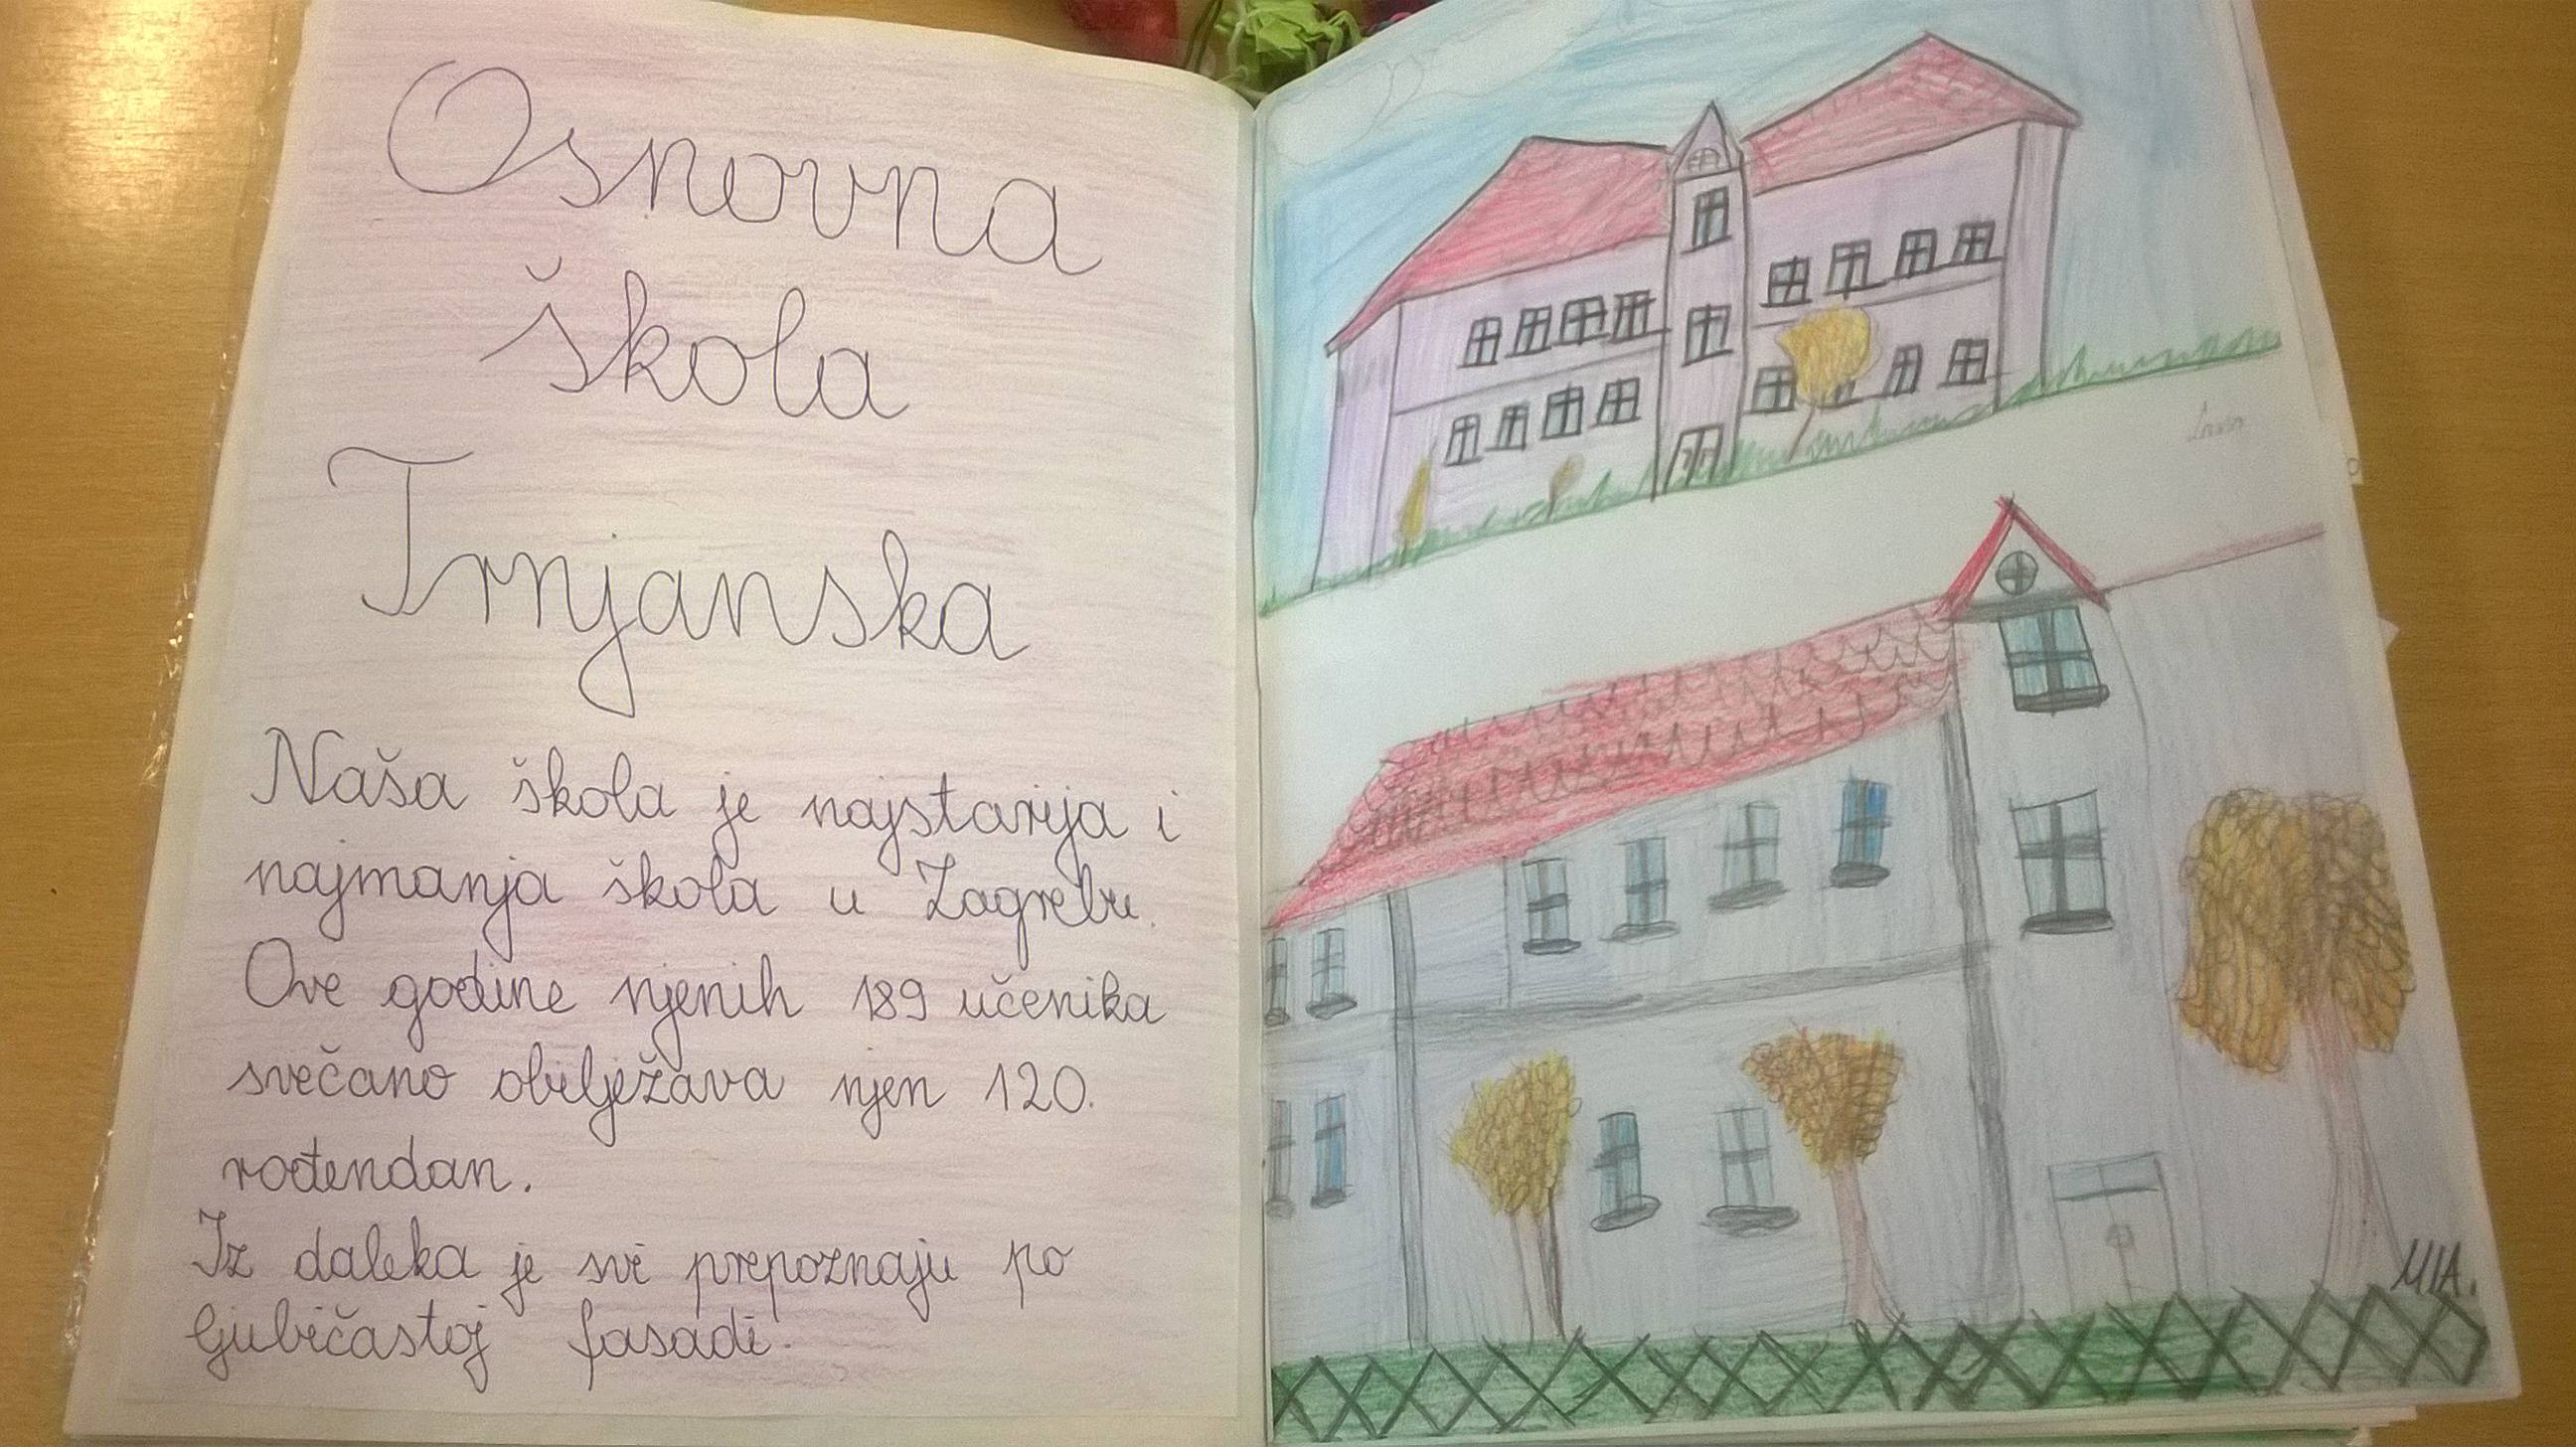 Osnovna
škola
Trnjanska
Naša škola je najstarija i
najmanja škola u Zagrebu.
Ove godine njenih 189 učenika
svečano obilježava njen 120.
rođendan.
Iz daleka je svi prepoznaju po
ljubičastoj fasadi.
MIA.